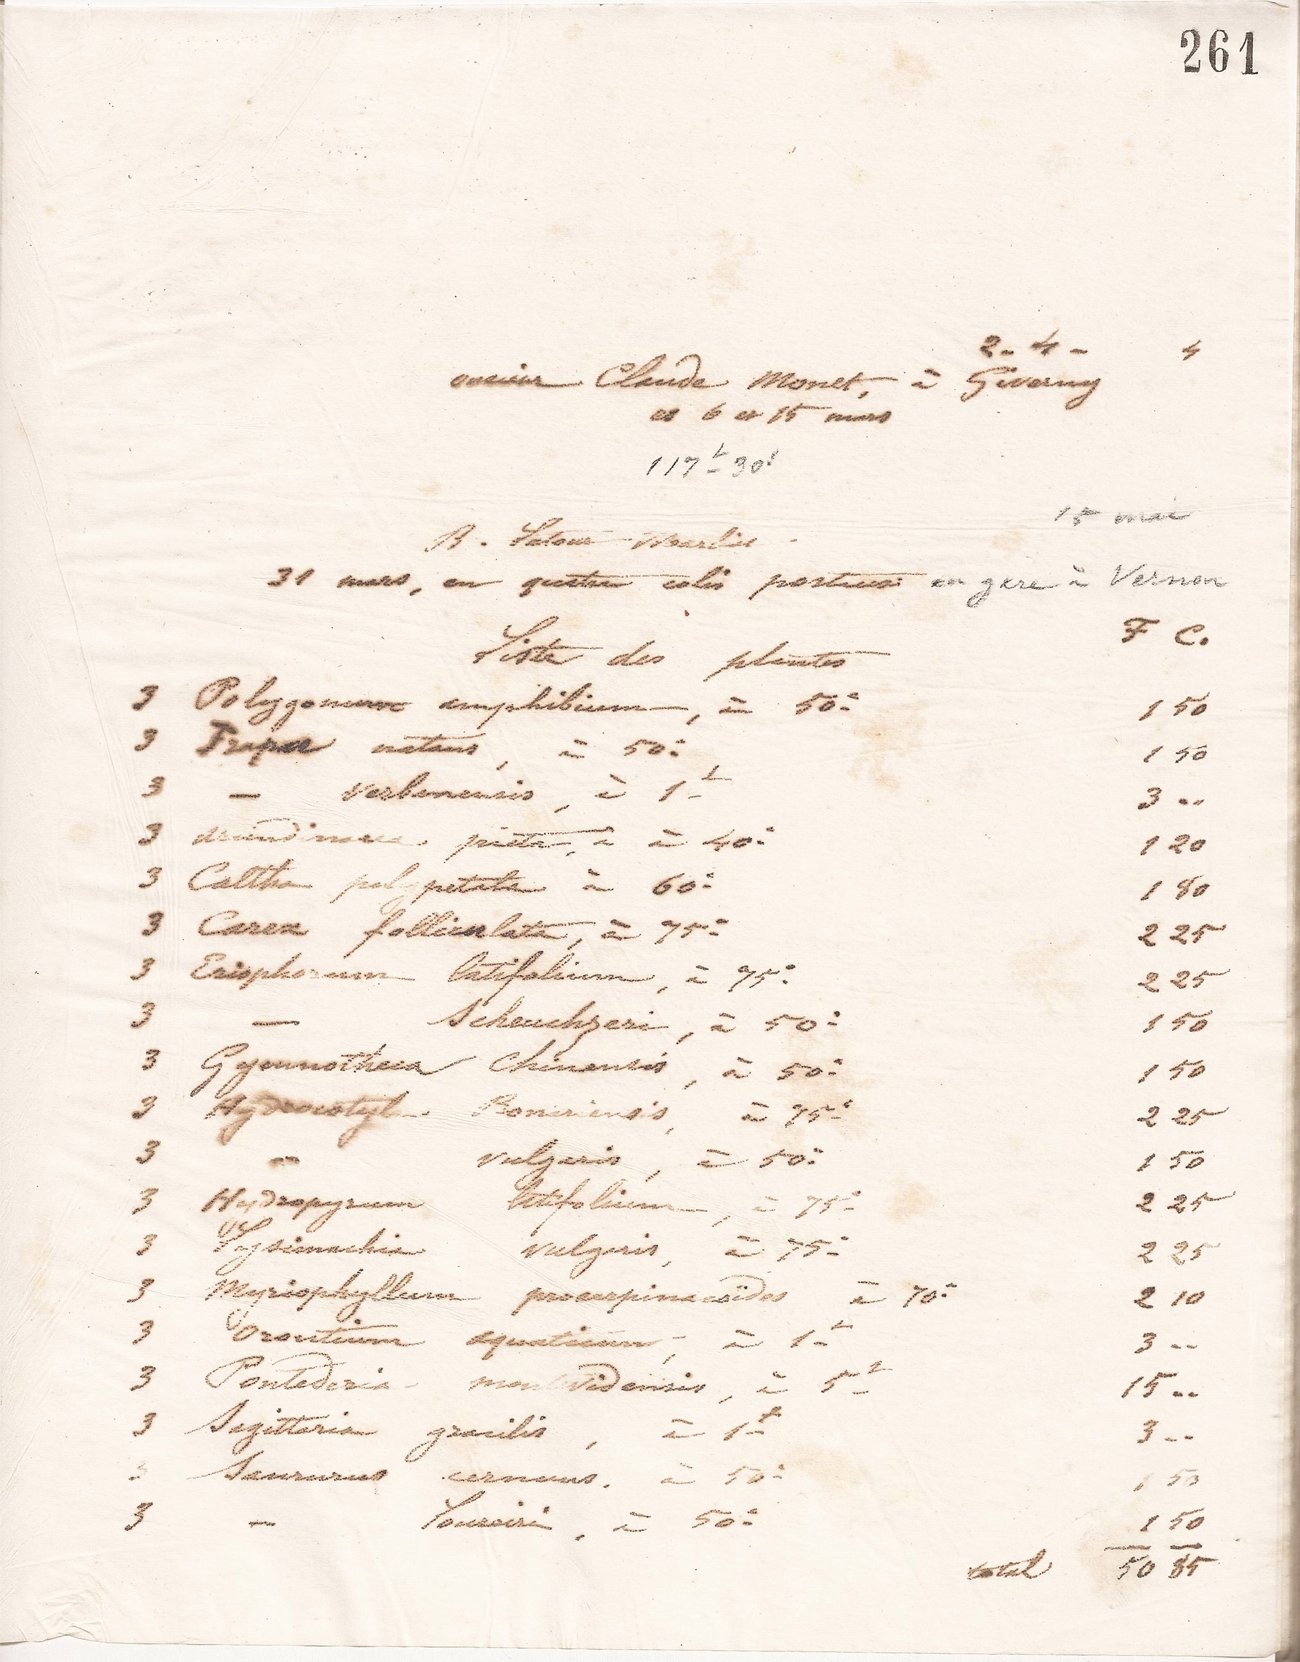 261
2 - 4 - 4
Claude Monet, à Giverny
6 et 15 mars
117 f 30 c
15 mai
B. Latour Marliac
31 mars, en quatre colis postaux en gare à Vernon
Liste des plantes F C.
3 Polygonum amphibium, à 50c 1 50
3 Trapa natans, à 50c 1 50
3 — verbanensis, à 1f 3 --
3 arundinaria picta, à 40c 1 20
3 Caltha polypetala à 60c 1 80
3 Carex folliculata, à 75c 2 25
3 Eriophorum latifolium, à 75c 2 25
3 — Scheuchzeri, à 50c 1 50
3 Gymnotheca Chinensis, à 50c 1 50
3 Hydrocotyle Bonariensis, à 75c 2 25
3 — vulgaris, à 50c 1 50
3 Hydropyrum latifolium, à 75c 2 25
3 Lysimachia vulgaris, à 75c 2 25
3 Myriophyllum proserpinacoïdes à 70c 2 10
3 Orontium aquaticum, à 1f 3 --
3 Pontederia montevidensis, à 5f 15 --
3 Sagittaria gracilis, à 1f 3 --
3 Saururus cernuus, à 50c 1 50
3 — Loureiri, à 50c 1 50
total 50 85